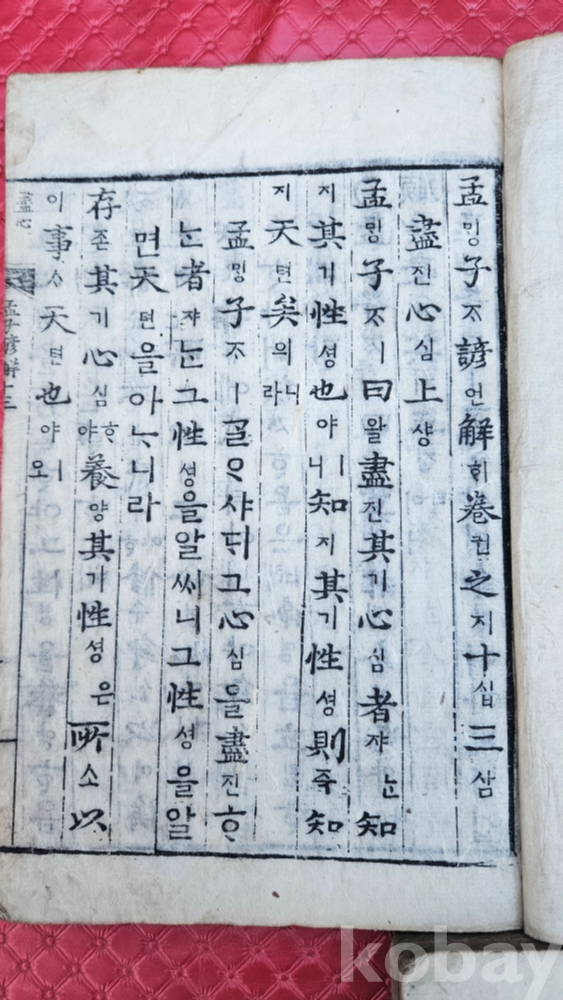 孟ᄆᆡᆼ子ᄌᆞ諺언解ᄒᆡ卷권之지十십三삼
盡진心심上샹
孟ᄆᆡᆼ子ᄌᆞㅣ曰왈盡진其기心심者쟈ᄂᆞᆫ知
지其기性셩也야ㅣ니知지其기性셩則즉知
지天텬矣의니라
孟ᄆᆡᆼ子ᄌᆞㅣᄀᆞᆯᄋᆞ샤ᄃᆡ그心심을盡진ᄒᆞ
ᄂᆞᆫ者쟈ᄂᆞᆫ그性셩을알ᄊᆡ니그性셩을알
면天텬을아ᄂᆞ니라
存존其기心심ᄒᆞ야養양其기性셩은所소以
이事ᄉᆞ天텬也야ㅣ오
盡心
孟子諺解十三
kobay